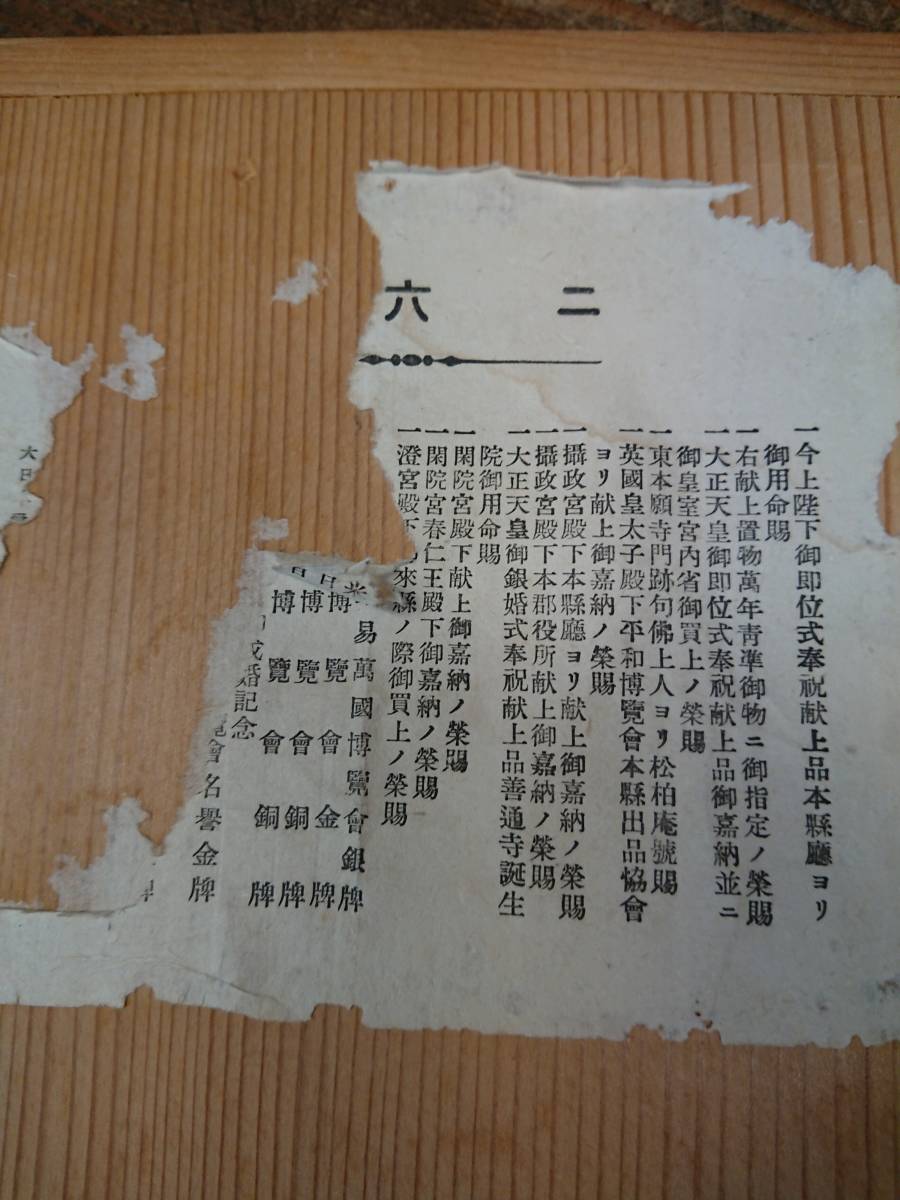 二六
一今上陛下御即位式奉祝献上品本縣廳ヨリ
御用命賜
一右献上置物萬年靑準御物ニ御指定ノ榮賜
一大正天皇御即位式奉祝献上品御嘉納並ニ
御皇室宮内省御買上ノ榮賜
一東本願寺門跡句佛上人ヨリ松柏庵號賜
一英國皇太子殿下平和博覽會本縣出品恊會
ヨリ献上御嘉納ノ榮賜
一攝政宮殿下本縣廳ヨリ献上御嘉納ノ榮賜
一攝政宮殿下本郡役所献上御嘉納ノ榮賜
一大正天皇御銀婚式奉祝献上品善通寺誕生
院御用命賜
一閑院宮殿下献上御嘉納ノ榮賜
一閑院宮春仁王殿下御嘉納ノ榮賜
一澄宮殿下來縣ノ際御買上ノ榮賜
易萬國博覽會銀牌
博覽會金牌
博覽會銅牌
博覽會銅牌
婚記念
會名譽金牌
牌
大日